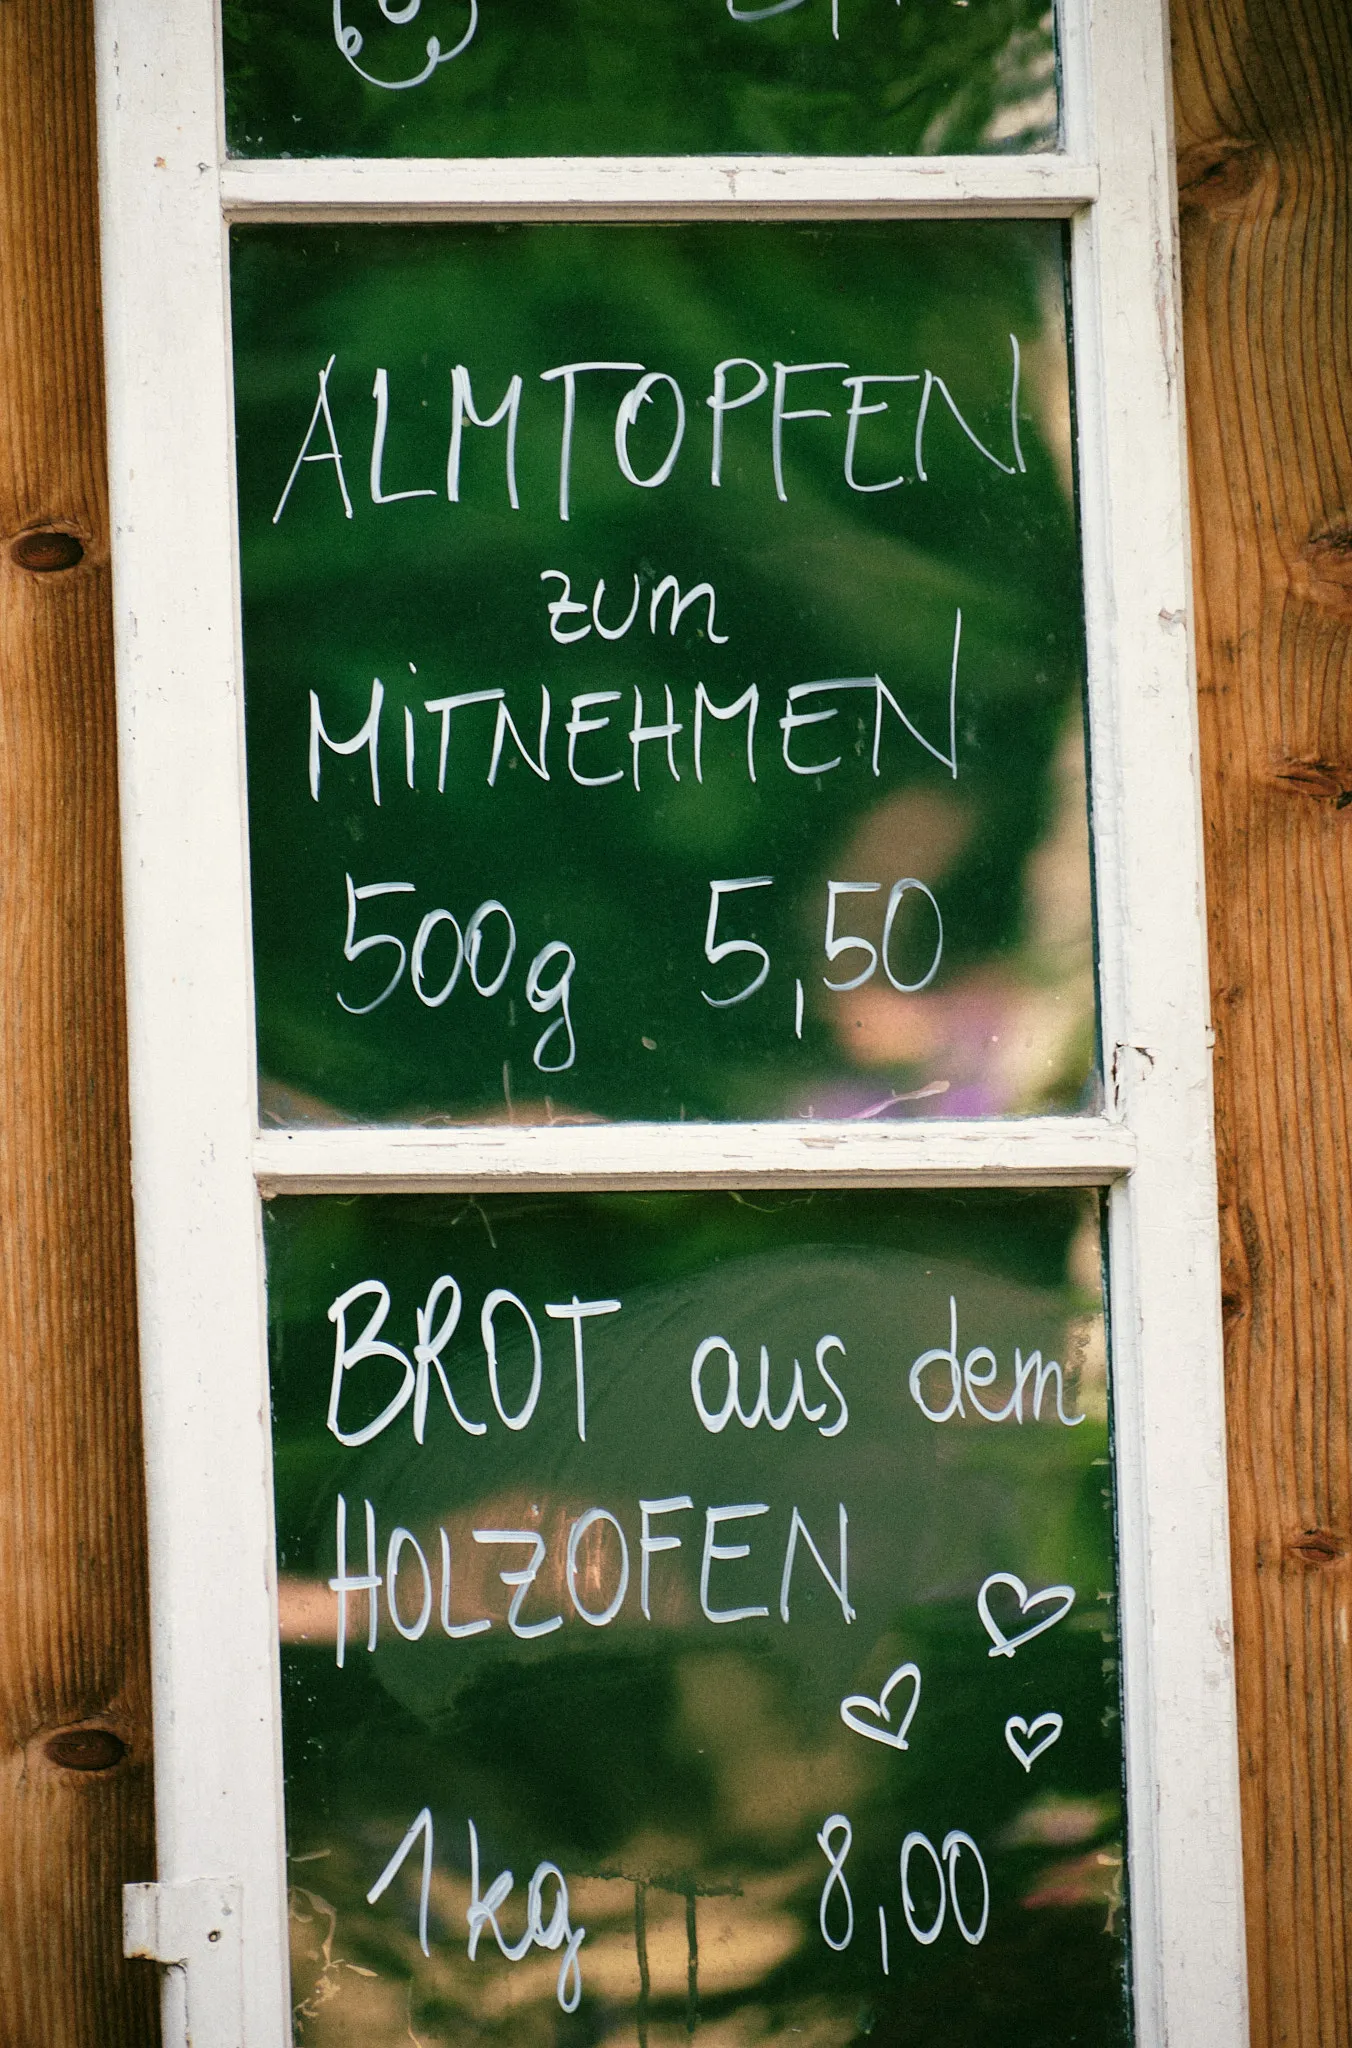 ALMTOPFEN
zum
MiTNEHMEN
500g 5,50
BROT aus dem
HOLZOFEN
1kg 8,00